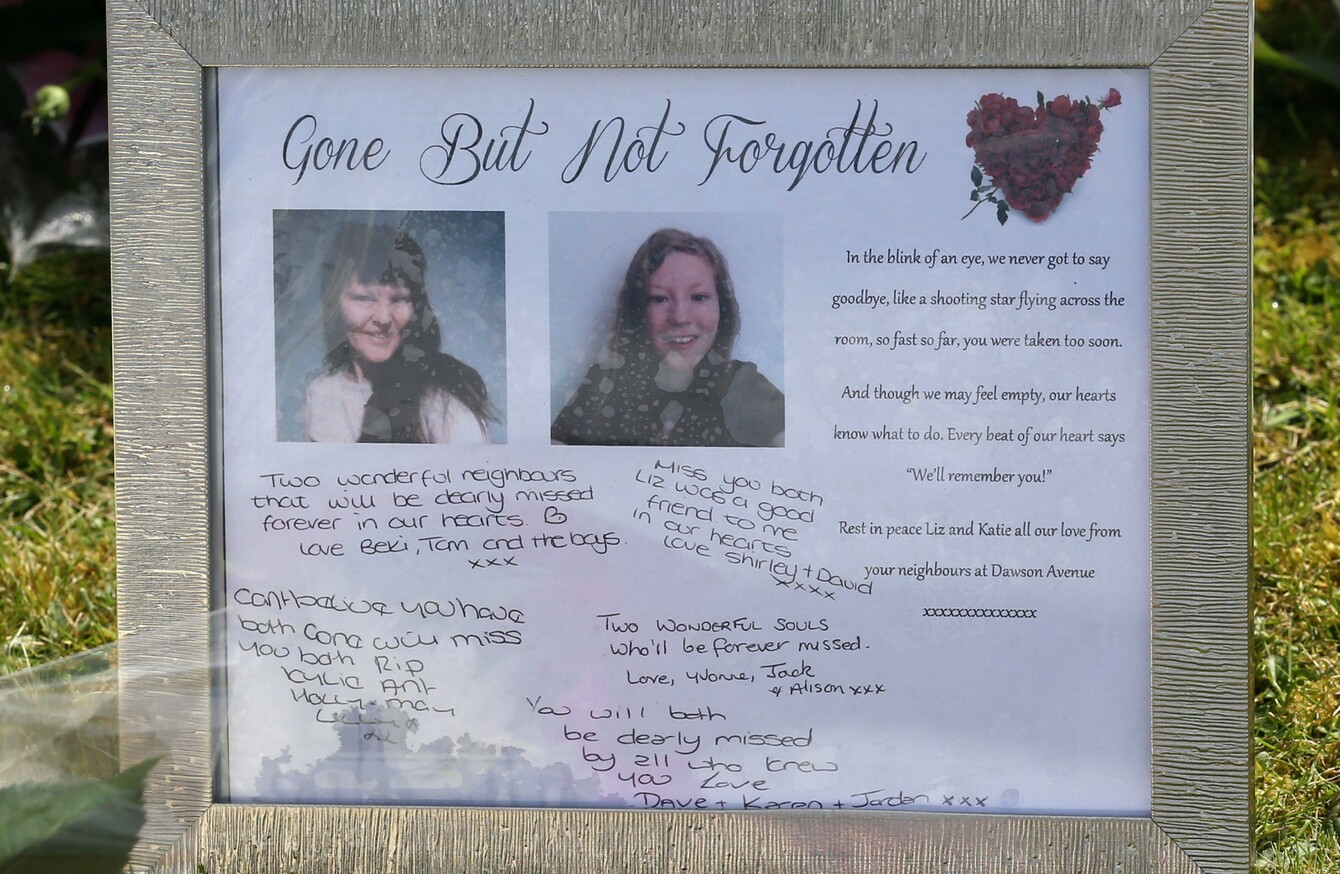 Gone But Not Forgotten
In the blink of an eye, we never got to say
goodbye, like a shooting star flying across the
room, so fast so far, you were taken too soon.
And though we may feel empty, our hearts
know what to do. Every beat of our heart says
“We’ll remember you!”
Rest in peace Liz and Katie all our love from
your neighbours at Dawson Avenue
xxxxxxxxxxxxxx
Two wonderful neighbours
that will be dearly missed
forever in our hearts.
Love Beki, Tom and the boys.
xxx
Miss you both
Liz was a good
friend to me
in our hearts
love Shirley + David
xxxx
you have
both Gone will miss
You both Rip
Kylie Ant
Holly-may
Two Wonderful Souls
who'll be forever missed.
Love, Yvonne, Jack
& Alison xxx
You will both
be dearly missed
by all who knew
you Love
Dave + Karen + Jordan xxx